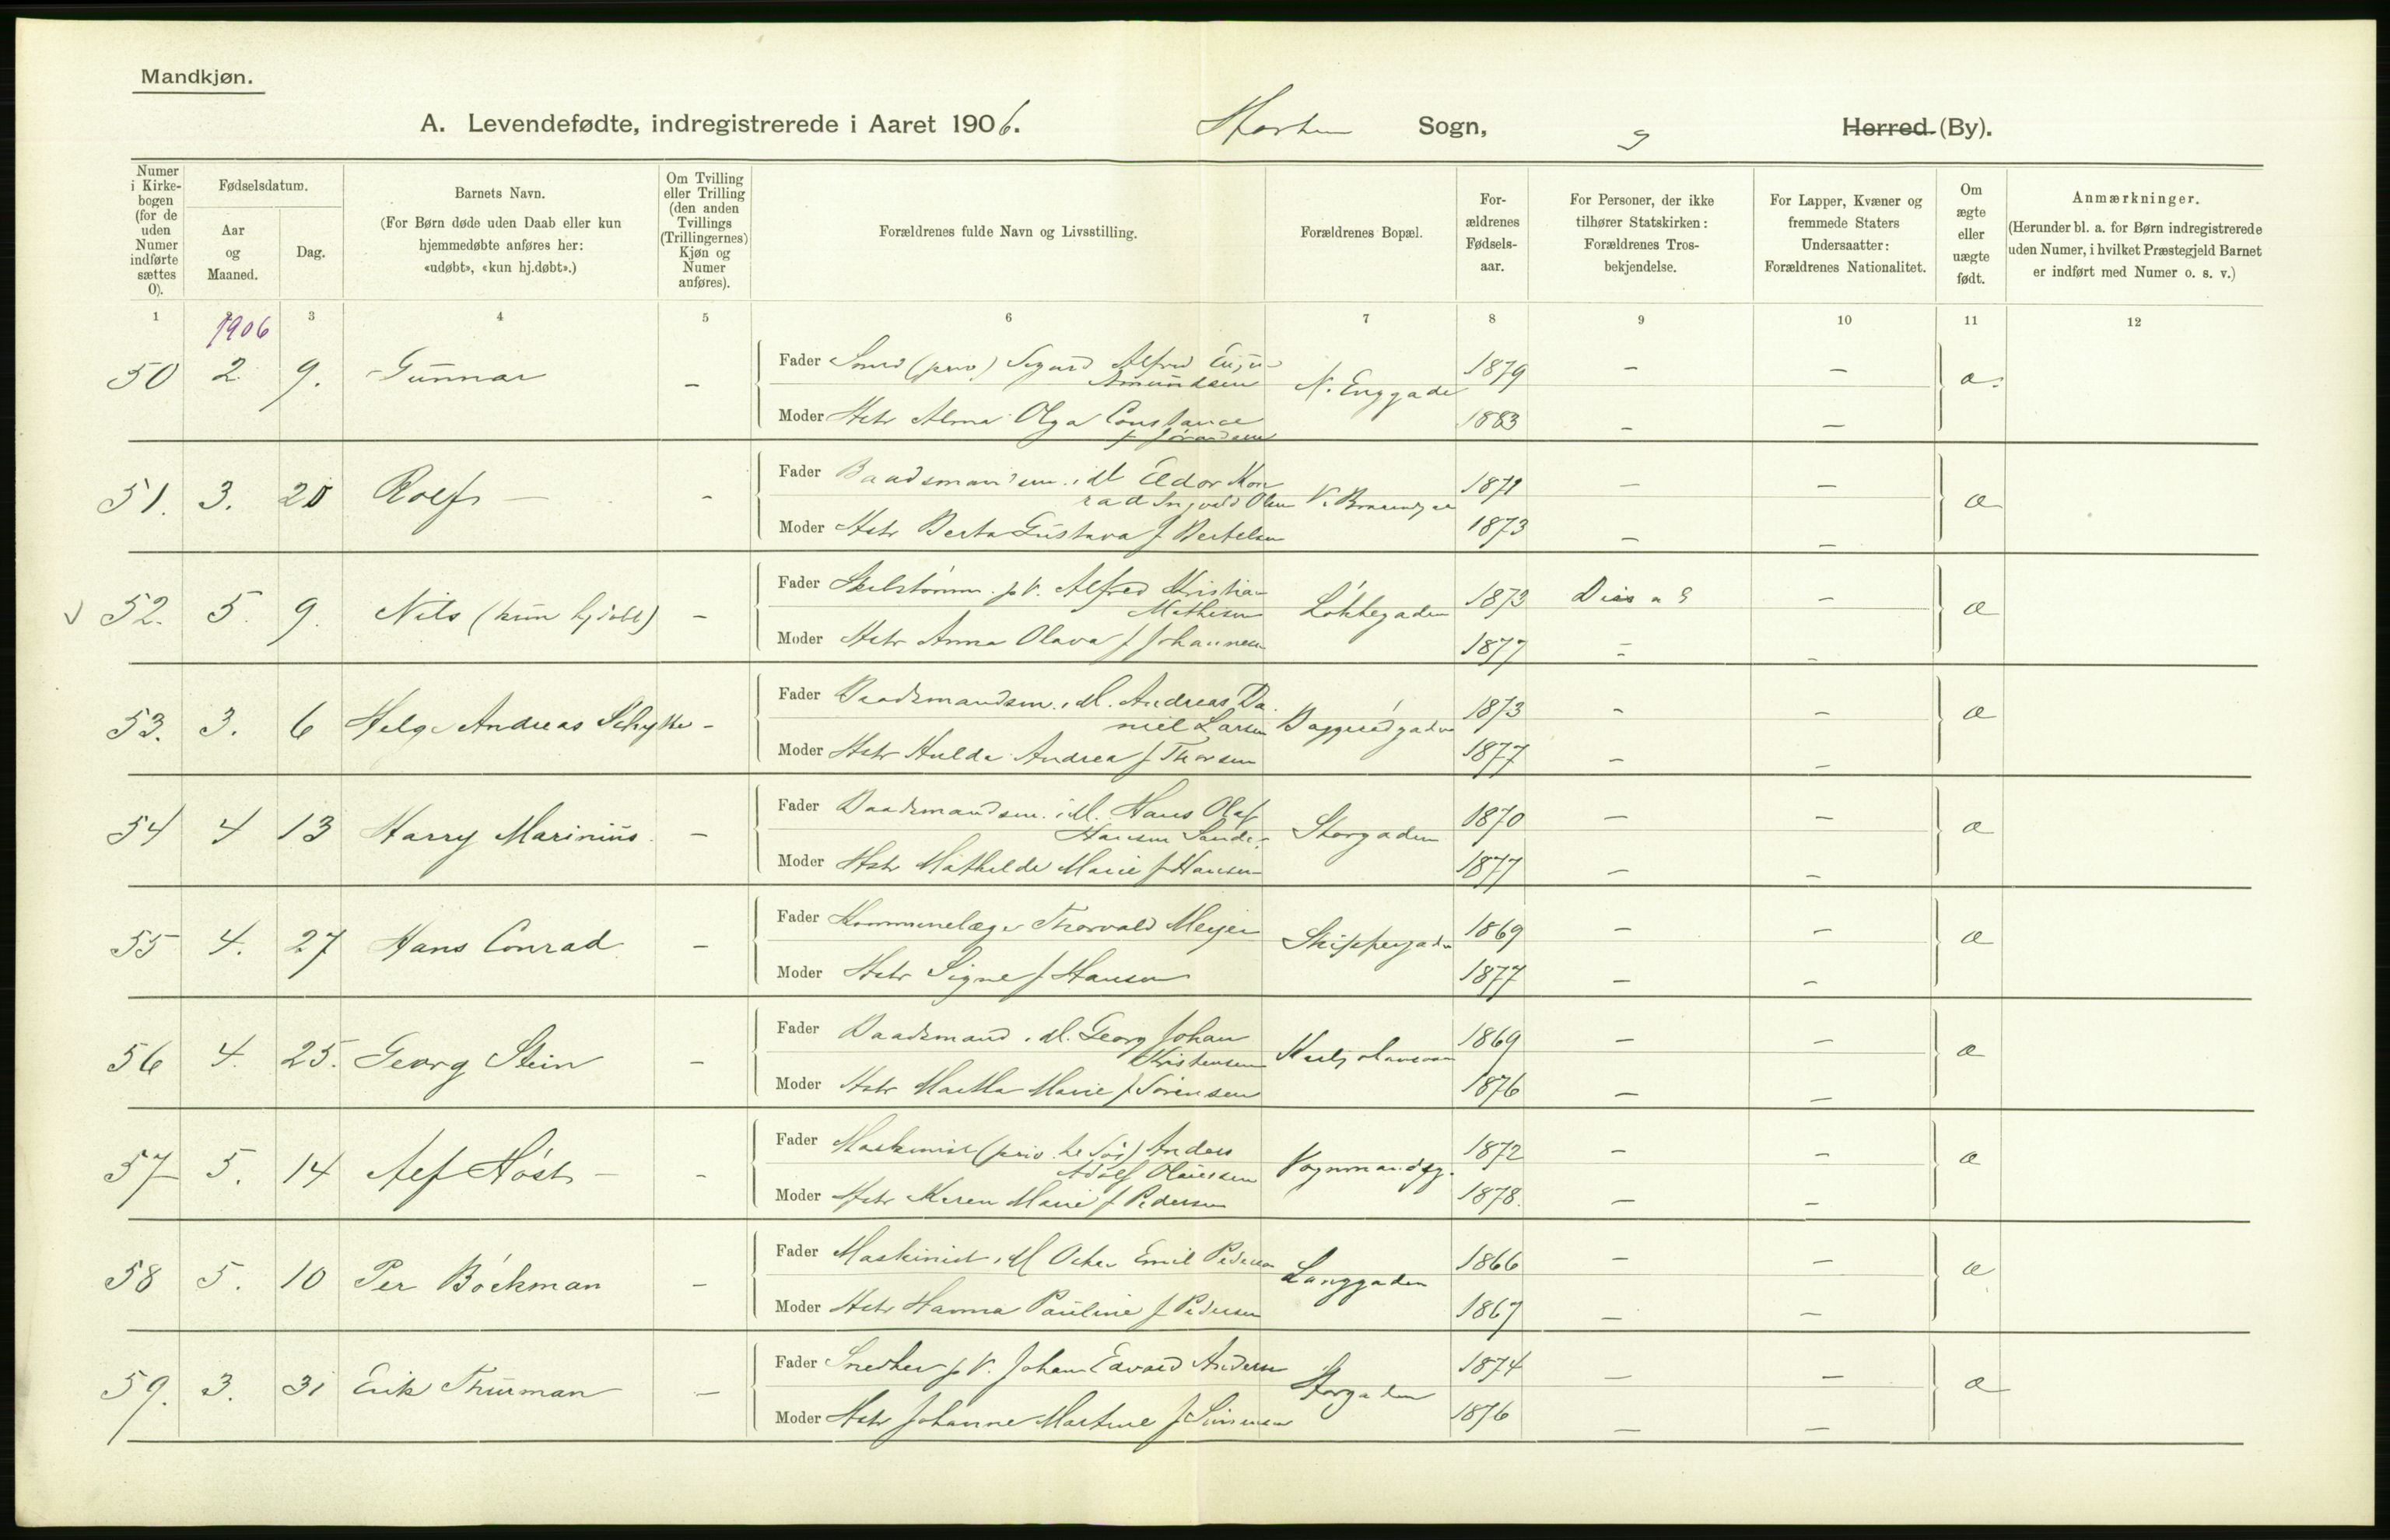 Mandkjøn.
A. Levendefødte, indregistrerede i Aaret 1906. Horten Sogn, Herred (By).
Numer i Kirkebogen (for de uden Numer indførte sættes 0).
Fødselsdatum.
Aar og Maaned.
Dag.
Barnets Navn.
(For Børn døde uden Daab eller kun hjemmedøbte anføres her: «udøbt», «kun hj.døbt».)
Om Tvilling eller Trilling (den anden Tvillings (Trillingernes) Kjøn og Numer anføres).
Forældrenes fulde Navn og Livsstilling.
Forældrenes Bopæl.
Forældrenes Fødselsaar.
For Personer, der ikke tilhører Statskirken: Forældrenes Trosbekjendelse.
For Lapper, Kvæner og fremmede Staters Undersaatter: Forældrenes Nationalitet.
Om ægte eller uægte født.
Anmærkninger.
(Herunder bl. a. for Børn indregistrerede uden Numer, i hvilket Præstegjeld Barnet er indført med Numer o. s. v.)
1 2 3 4 5 6 7 8 9 10 11 12
1906
50 2 9. Gunnar –
Fader Smed (priv) Sigurd Alfred
Amundsen N. Enggade 1879 – – æ.
Moder Hstr Alma Olga Constance 1883 – –
51. 3. 20 Rolf – –
Fader Baadsmandsm. i M Eldor Kon
rad Ingvald Olsen 1871 – – æ
Moder Hstr Berta Gustava f Bertelsen 1873 – –
52. 5. 9. Nils (kun hjdøbt) –
Fader p V. Alfred Kristian
Mathisen Løkkegaden 1873 Diss – æ
Moder Hstr Anna Olava f Johannesen 1877 – –
53. 3. 6 Helge Andreas Schytte –
Fader Baadsmandsm. i M. Andreas Da
niel Larsen Baggerødgaden 1873 – – æ
Moder Hstr Hulda Andrea f Thorsen 1877 – –
54 4 13 Harry Marinius. –
Fader Baadsmandsm. i M. Hans Olaf
Hansen Sande. Storgaden 1870 – – æ
Moder Hstr Mathilde Marie f Hansen 1877 – –
55 4. 27 Hans Conrad. –
Fader Kommunelæge Thorvald Meyer Skippergaden 1869 – – æ
Moder Hstr Signe f Hansen 1877 – –
56 4. 25. Georg Stein –
Fader Baadsmand i M. Georg Johan
Kristensen 1869 – – æ
Moder Hstr Martha Marie f Sørensen 1876 – –
57 5. 14 Alf Høst – –
Fader Maskinist (priv. til Søs) Anders
Adolf Olaussen Vognmandsg. 1872 – – æ
Moder Hstr Karen Marie f Pedersen 1878. – –
58 5. 10 Per Bøckman –
Fader Maskinist i M Oskar Emil Pedersen Langgaden 1866 – – æ
Moder Hstr Hanna Pauline f Pedersen 1867 – –
59. 3. 31 Erik Thurman –
Fader Snedker p V. Johan Edvard Andersen Storgaden 1874 – – æ
Moder Hstr Johanne Martine f Simensen 1876 – –